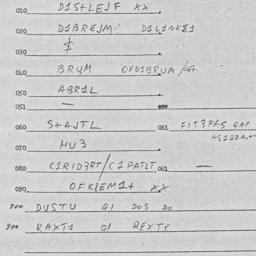 010 D1S+LEJF XX
020 D1BREJM D1LINKE1
030 $
040 BRUM OFD1BRUM/
050 ABR1L
051 —
060 S+AJTL 061 F1T3FAS GAP
070 HU3
080 C1RID3RT/C1PATLT 081 —
090 OFKREM1+ XX
DUSTU Q1 DOS DO
RAXT1 Q1 REXTE